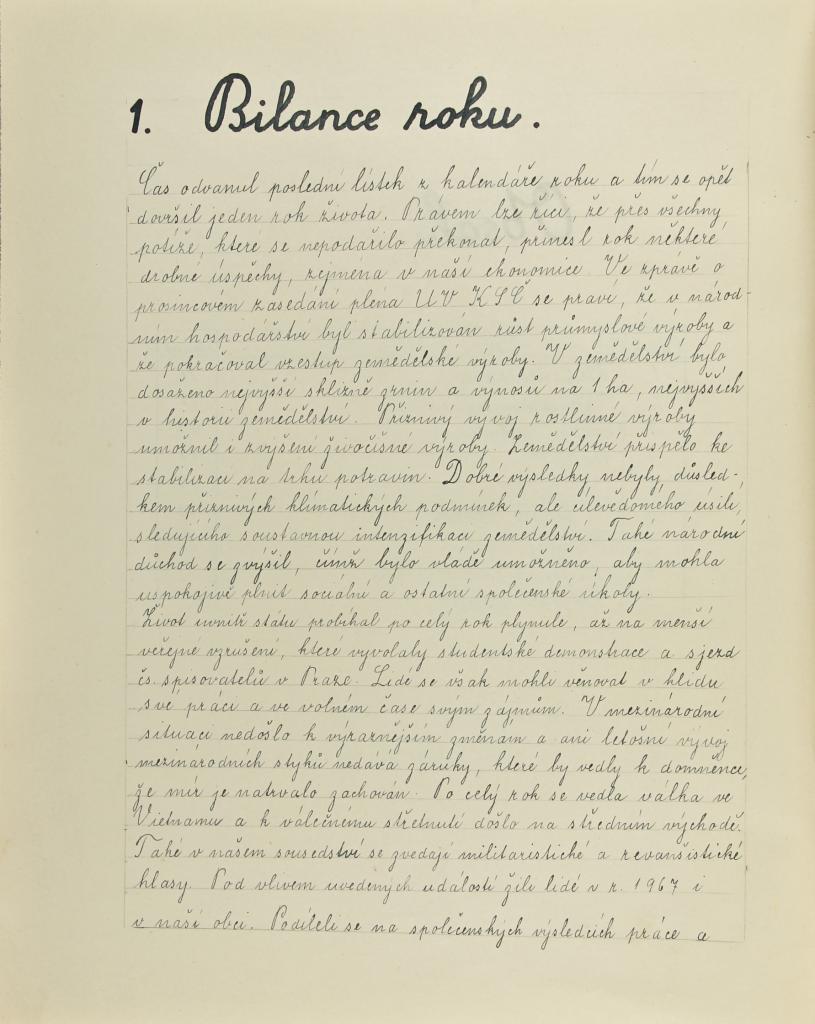 1. Bilance roku.
Čas odvanul poslední lístek z kalendáře roku a tím se opět
dovršil jeden rok života. Právem lze říci, že přes všechny
potíže, které se nepodařilo překonat, přinesl rok některé
drobné úspěchy, zejména v naší ekonomice. Ve zprávě o
prosincovém zasedání pléna ÚV KSČ se praví, že v národ-
ním hospodářství byl stabilizován růst průmyslové výroby a
že pokračoval vzestup zemědělské výroby. V zemědělství bylo
dosaženo nejvyšší sklizně zrnin a výnosů na 1 ha, nejvyšších
v historii zemědělství. Příznivý vývoj rostlinné výroby
umožnil i zvýšení živočišné výroby. Zemědělství přispělo ke
stabilizaci na trhu potravin. Dobré výsledky nebyly důsled-
kem příznivých klimatických podmínek, ale cílevědomého úsilí,
sledujícího soustavnou intenzifikaci zemědělství. Také národní
důchod se zvýšil, čímž bylo vládě umožněno, aby mohla
uspokojivě plnit sociální a ostatní společenské úkoly.
Život uvnitř státu probíhal po celý rok plynule, až na menší
veřejné vzrušení, které vyvolaly studentské demonstrace a sjezd
čs. spisovatelů v Praze. Lidé se však mohli věnovat v klidu
své práci a ve volném čase svým zájmům. V mezinárodní
situaci nedošlo k výraznějším změnám a ani letošní vývoj
mezinárodních styků nedává záruky, které by vedly k domněnce,
že mír je natrvalo zachován. Po celý rok se vedla válka ve
Vietnamu a k válečnému střetnutí došlo na středním východě.
Také v našem sousedství se zvedají militaristické a revanšistické
hlasy. Pod vlivem uvedených událostí žili lidé v r. 1967 i
v naší obci. Podíleli se na společenských výsledcích práce a